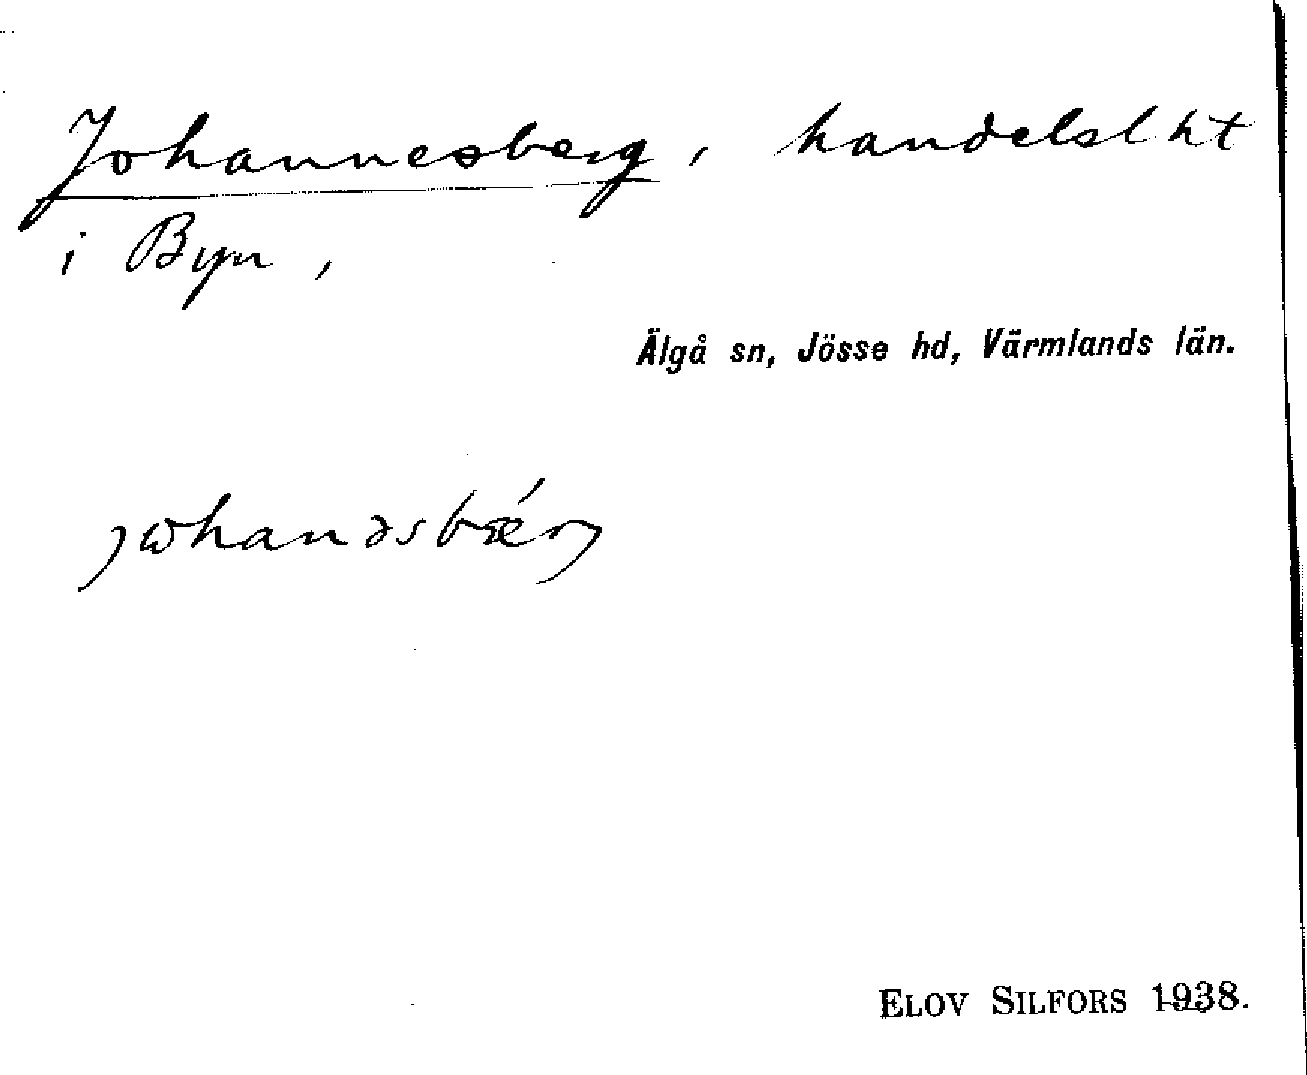 Johannesberg, handelslht
i Byn,
Älgå sn, Jösse hd, Värmlands län.
ELOV SILFORS 1938.